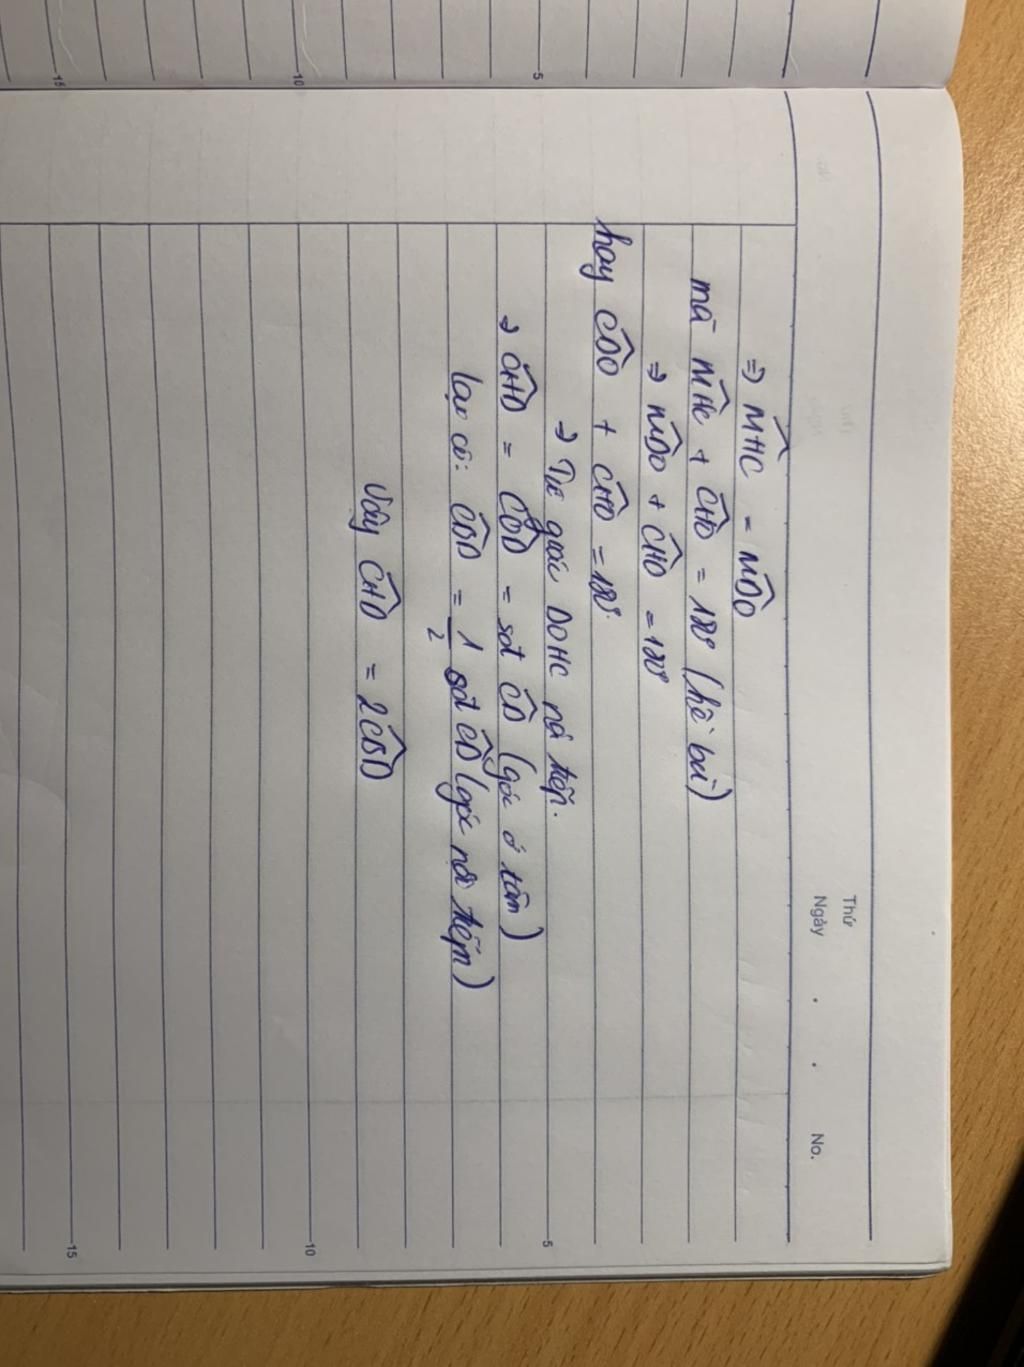 Thứ
Ngày . . No.
⇒ M̂HC = M̂DO
mà M̂HC + ĈHO = 180° (kề bù)
⇒ M̂DO + ĈHO = 180°
hay ĈDO + ĈHO = 180°.
⇒ Tứ giác DOHC nội tiếp.
⇒ ĈHD = ĈOD = sđt C͡D (góc ở tâm)
lại có: ĈBD = 1/2 sđt C͡D (góc nội tiếp)
Vậy ĈHD = 2ĈBD
5
10
15
5
10
15